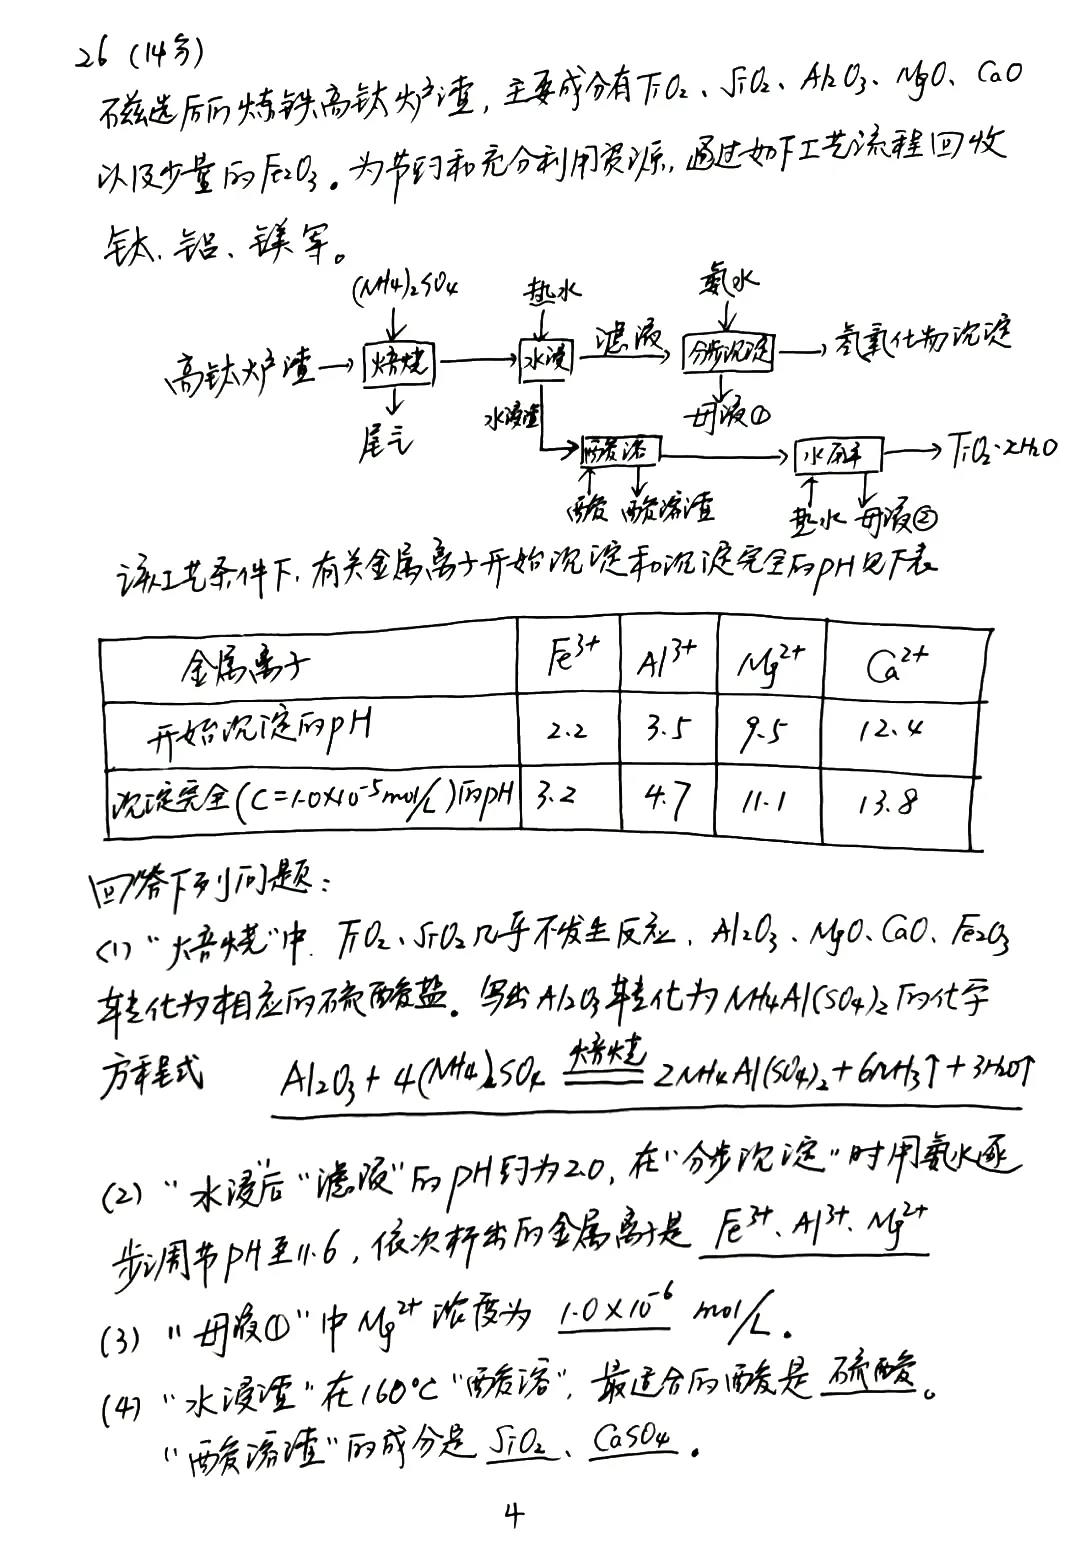 26 (14分)
磁选后的炼铁高钛炉渣，主要成分有TiO₂、SiO₂、Al₂O₃、MgO、CaO
以及少量的Fe₂O₃。为节约和充分利用资源，通过如下工艺流程回收
钛、铝、镁等。
(NH4)₂SO4 热水 氨水
高钛炉渣 → 焙烧 → 水浸 滤液 → 分步沉淀 → 氢氧化物沉淀
尾气 水浸渣 母液①
酸溶 → 水解 → TiO₂·xH₂O
酸 酸溶渣 热水 母液②
该工艺条件下，有关金属离子开始沉淀和沉淀完全的pH见下表
金属离子 Fe³⁺ Al³⁺ Mg²⁺ Ca²⁺
开始沉淀的pH 2.2 3.5 9.5 12.4
沉淀完全(C=1.0×10⁻⁵mol/L)的pH 3.2 4.7 11.1 13.8
回答下列问题：
(1) "焙烧"中，TiO₂、SiO₂几乎不发生反应，Al₂O₃、MgO、CaO、Fe₂O₃
转化为相应的硫酸盐。写出Al₂O₃转化为NH4Al(SO4)₂的化学
方程式 Al₂O₃+4(NH4)₂SO4 焙烧 2NH4Al(SO4)₂+6NH₃↑+3H₂O↑
(2) "水浸"后"滤液"的pH约为2.0，在"分步沉淀"时用氨水逐
步调节pH至11.6，依次析出的金属离子是 Fe³⁺、Al³⁺、Mg²⁺
(3) "母液①"中Mg²⁺浓度为 1.0×10⁻⁶ mol/L。
(4) "水浸渣"在160℃"酸溶"，最适合的酸是 硫酸。
"酸溶渣"的成分是 SiO₂、CaSO4。
4